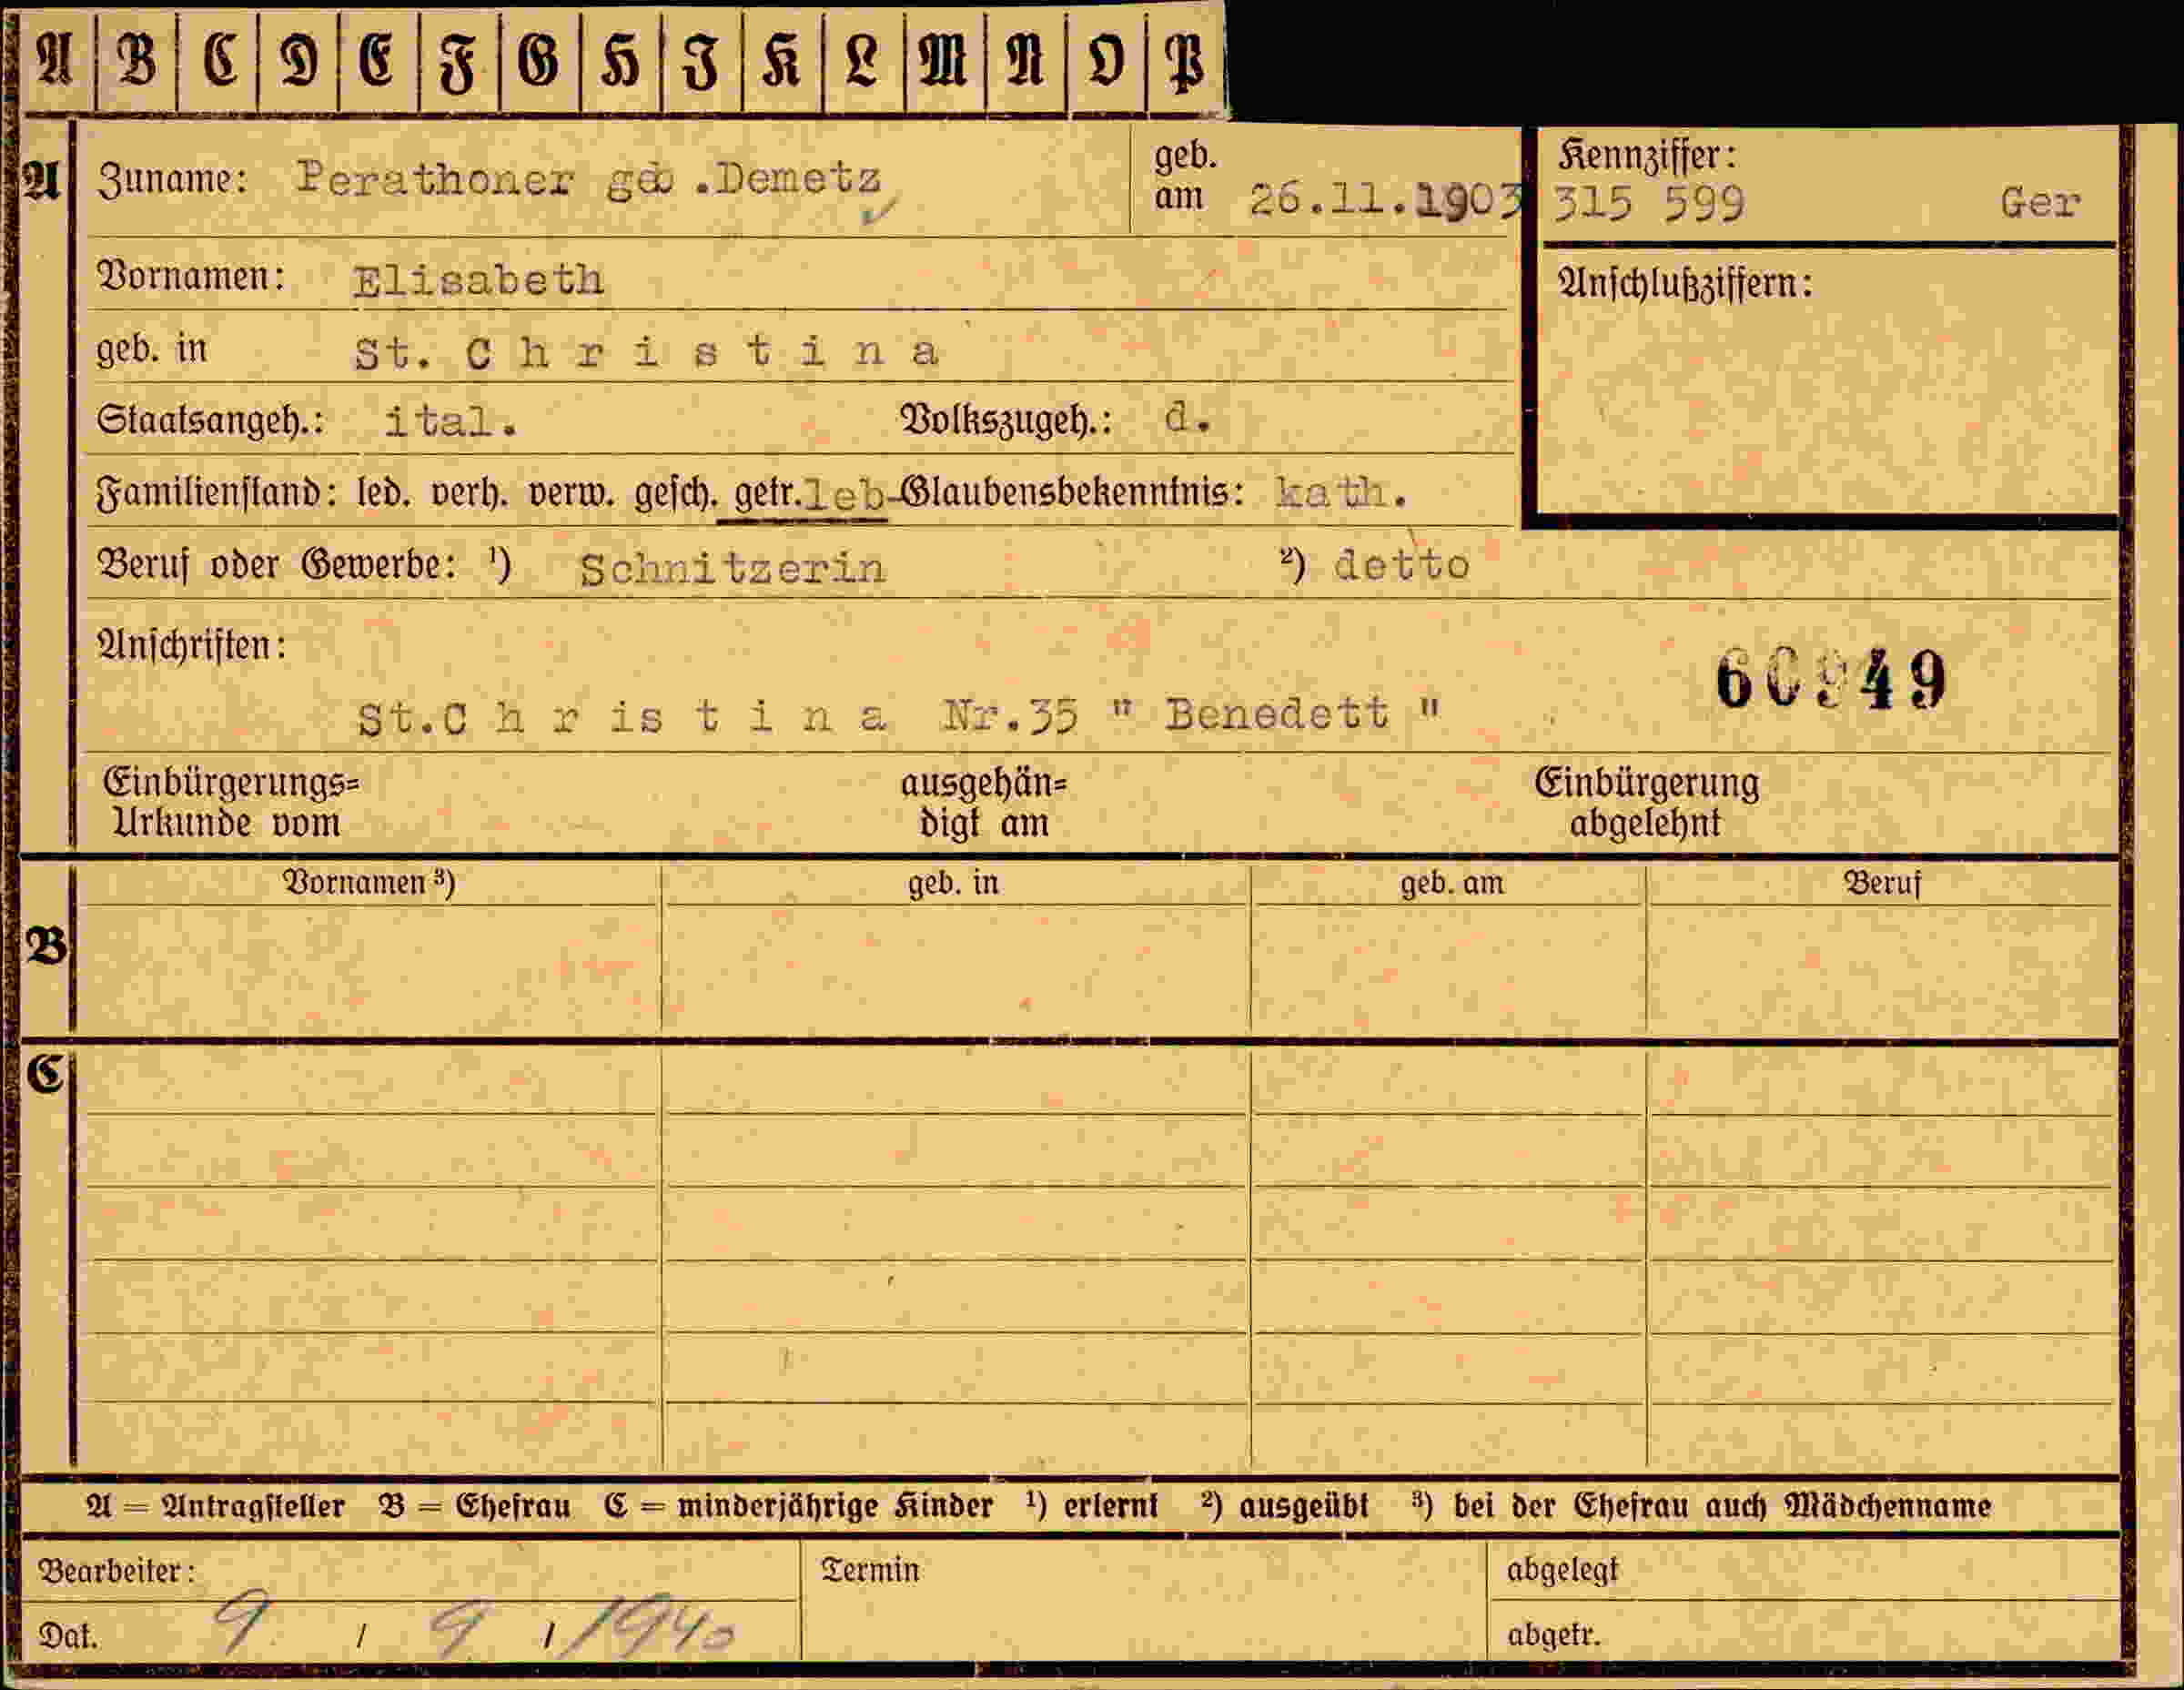 A B C D E F G H I K L M N O P
A Zuname: Perathoner geb.Demetz
geb. am 26.11.1903
Kennziffer:
315 599 Ger
Vornamen: Elisabeth
Anschlußziffern:
geb. in St. C h r i s t i n a
Staatsangeh.: ital. Volkszugeh.: d.
Familienstand: led. verh. verw. gesch. getr.leb- Glaubensbekenntnis: kath.
Beruf oder Gewerbe: ¹) Schnitzerin ²) detto
Anschriften:
60949
St.C h r is t i n a Nr.35 " Benedett "
Einbürgerungs= ausgehän= Einbürgerung
Urkunde vom digt am abgelehnt
Vornamen ³) geb. in geb. am Beruf
B
C
A = Antragsteller B = Ehefrau C = minderjährige Kinder ¹) erlernt ²) ausgeübt ³) bei der Ehefrau auch Mädchenname
Bearbeiter: Termin abgelegt
Dat. 9 / 9 / 1940 abgetr.